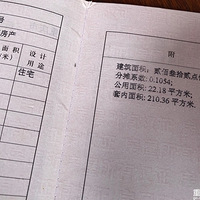 号
房产
面积
设计
(米)
用途
住宅
附
建筑面积: 贰佰叁拾贰点
分摊系数: 0.1054;
公用面积: 22.18 平方米;
套内面积: 210.36 平方米,